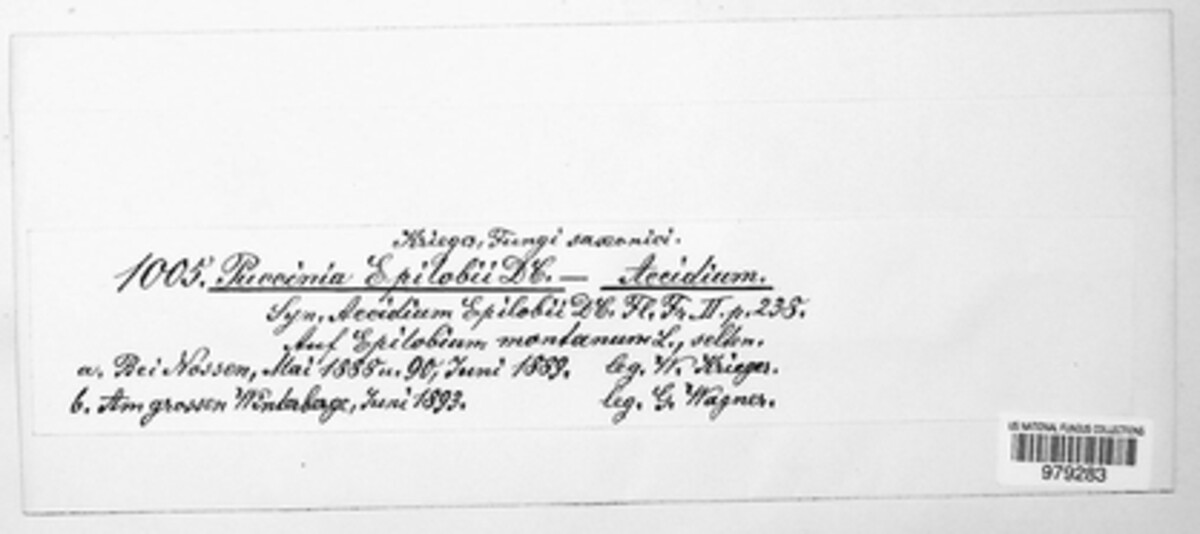 Krieger, Fungi saxonici.
1005. Puccinia Epilobii DC. — Aecidium.
Syn. Aecidium Epilobii DC. Fl. Fr. II. p. 238.
Auf Epilobium montanum L., selten.
a. Bei Nossen, Mai 1888 u. 90, Juni 1889. leg. W. Krieger.
b. Am grossen Winterberge, Juni 1893. leg. G. Wagner.
US NATIONAL FUNGUS COLLECTIONS
979283